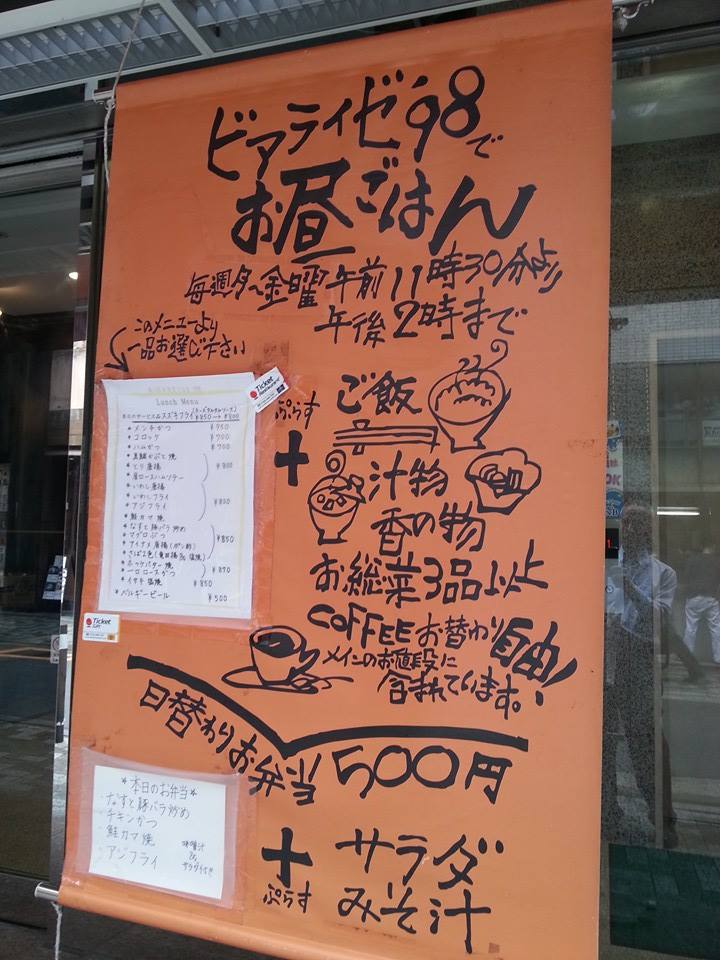 ビアライゼ'98で
お昼ごはん
毎週月〜金曜 午前11時30分より
午後2時まで
このメニューより
一品お選び下さい
Lunch Menu
本日のサービス品 スズキフライ ¥850→¥800
* メンチかつ ¥750
* コロッケ ¥700
* ハムかつ ¥700
* 真鯛かぶと焼
* とり唐揚 ¥800
* 肩ロースハムソテー
* いわし唐揚
* いわしフライ
* アジフライ ¥800
* 鮭カマ焼
* なすと豚バラ炒め
* マグロぶつ ¥850
* アイナメ唐揚(ポン酢)
* さば2色(竜田揚 &塩焼)
* ホッケバター焼
* 一口ロースかつ ¥870
* イサキ塩焼 ¥850
* ベルギービール ¥500
Ticket
Restaurant
ぷらす
+
ご飯
汁物
香の物
お総菜3品以上
COFFEEお替わり自由!
メインのお値段に
含まれています。
Ticket
日替わりお弁当 500円
*本日のお弁当*
・なすと豚バラ炒め
・チキンかつ
・鮭カマ焼
・アジフライ
味噌汁
&
サラダ付き
+
ぷらす
サラダ
みそ汁